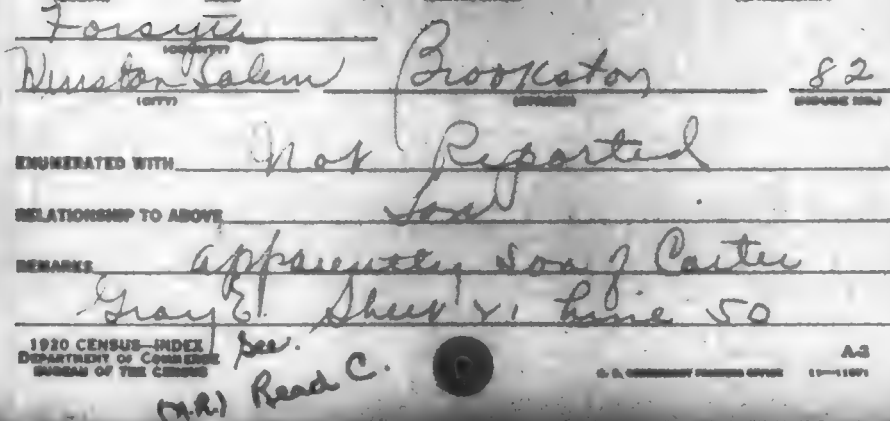 Forsyth
(COUNTY)
Winston Salem Brookston 82
(CITY) (STREET) (HOUSE NO.)
ENUMERATED WITH Not Reported
RELATIONSHIP TO ABOVE Son
REMARKS apparently son of Carter
Gray E. Sheet Line 50
1920 CENSUS—INDEX See.
DEPARTMENT OF COMMERCE A-3
BUREAU OF THE CENSUS U. S. GOVERNMENT PRINTING OFFICE
(N.R.) Read C.